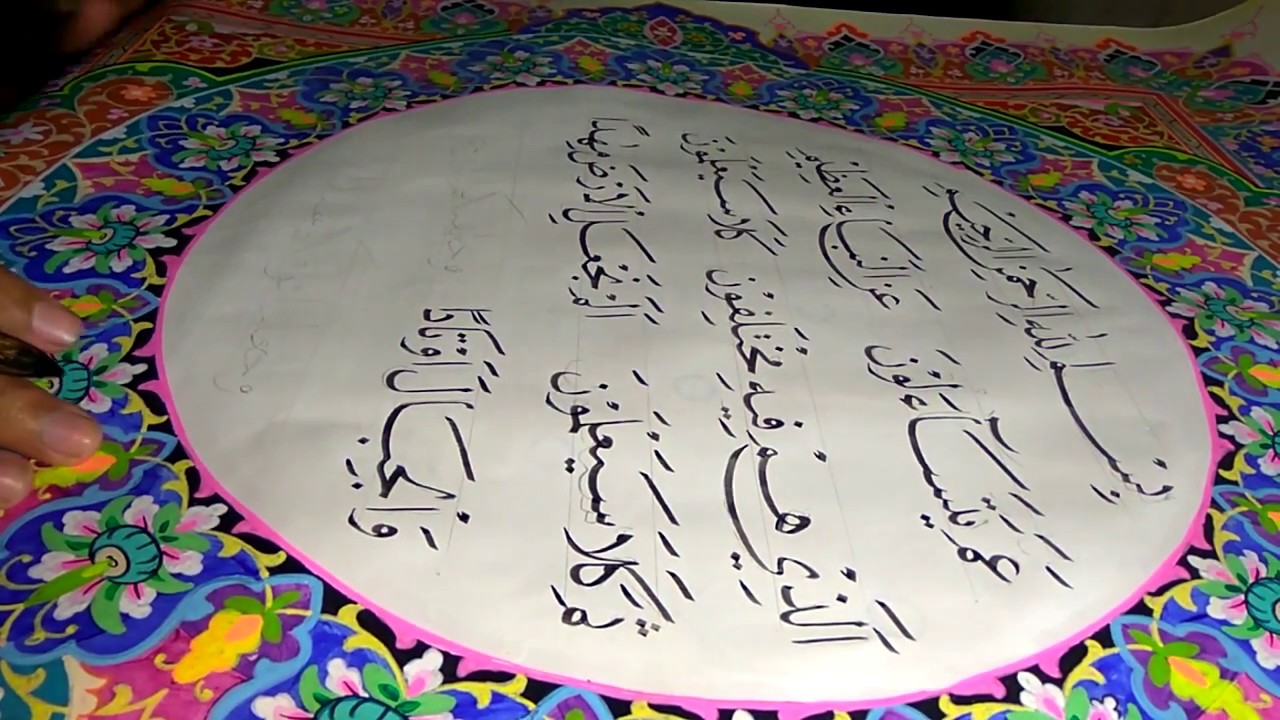 بِسْمِ اللّٰهِ الرَّحْمٰنِ الرَّحِيمِ
عَمَّ يَتَسَآءَلُوْنَ عَنِ النَّبَاءِ الْعَظِيمِ
اَلَّذِيْ هُمْ فِيْهِ مُخْتَلِفُوْنَ كَلَّا سَيَعْلَمُوْنَ
ثُمَّ كَلَّا سَيَعْلَمُوْنَ اَلَمْ نَجْعَلِ الْاَرْضَ مِهٰدًا
وَالْجِبَالَ اَوْتَادًا